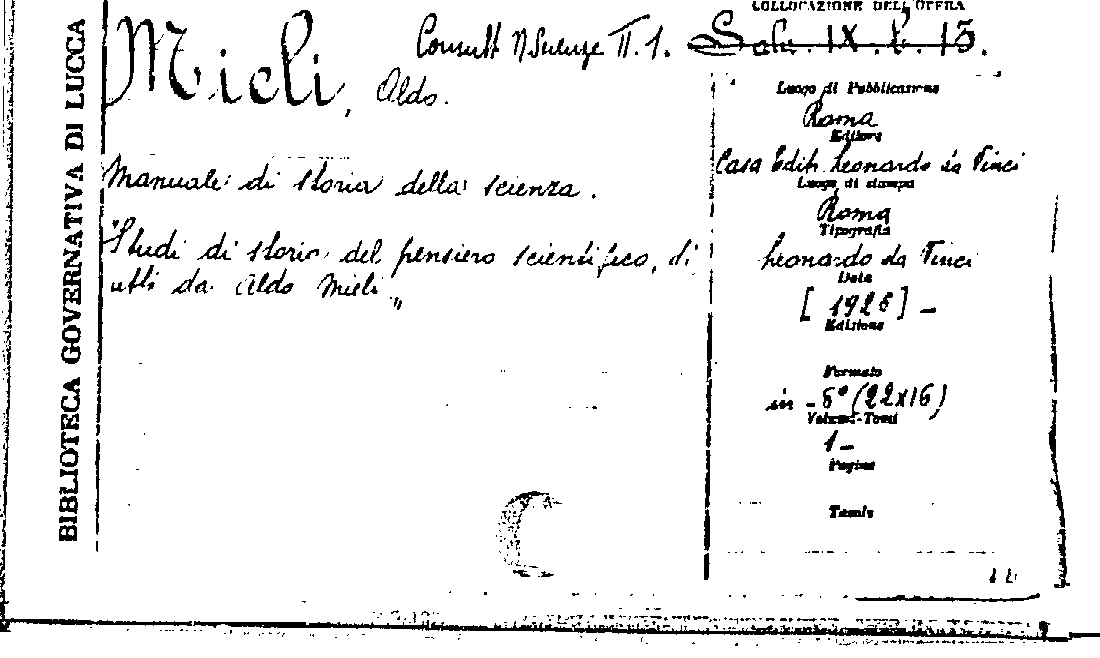 COLLOCAZIONE DELL'OPERA
Consult N Scienze II. 1. Sala. IX. b. 15.
Mieli, Aldo.
Manuale di storia della scienza.
"Studi di storia del pensiero scientifico, di
etti da Aldo Mieli"
Luogo di Pubblicazione
Roma
Editore
Casa Edit. Leonardo da Vinci
Luogo di stampa
Roma
Tipografia
Leonardo da Vinci
Data
[1925] -
Edizione
Formato
in - 8° (22x16)
Volumi-Tomi
1 -
Pagine
Tavole
BIBLIOTECA GOVERNATIVA DI LUCCA
C